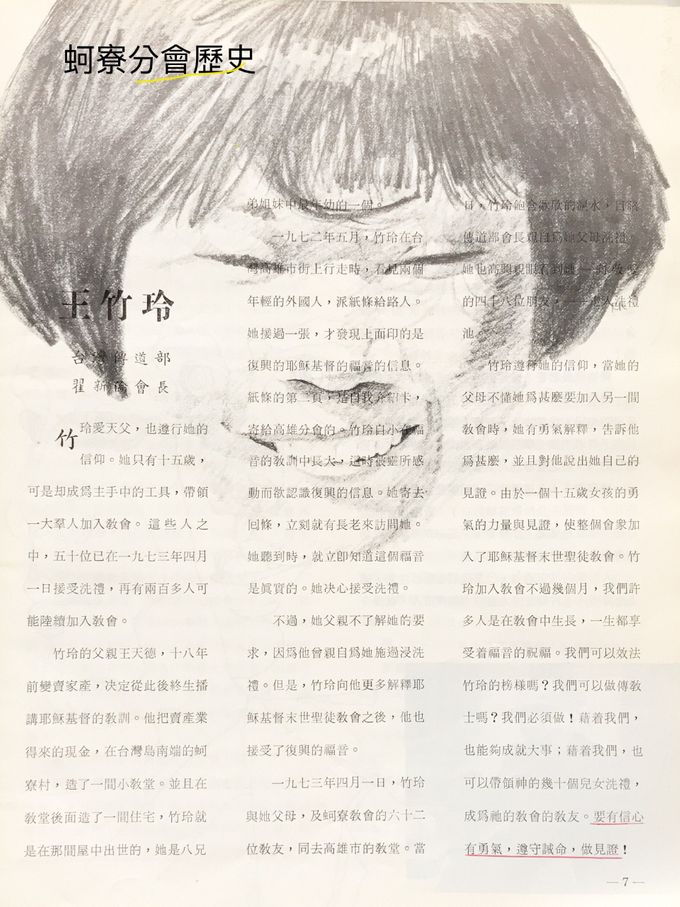 蚵寮分會歷史
王竹玲
台灣傳道部
翟新倫會長
竹玲愛天父，也遵行她的
信仰。她只有十五歲，
可是却成爲主手中的工具，帶領
一大羣人加入敎會。這些人之
中，五十位已在一九七三年四月
一日接受洗禮，再有兩百多人可
能陸續加入敎會。
竹玲的父親王天德，十八年
前變賣家產，决定從此後終生播
講耶穌基督的敎訓。他把賣產業
得來的現金，在台灣島南端的蚵
寮村，造了一間小敎堂。並且在
敎堂後面造了一間住宅，竹玲就
是在那間屋中出世的，她是八兄
弟姐妹中最年幼的一個。
一九七二年五月，竹玲在台
灣高雄市街上行走時，看見兩個
年輕的外國人，派紙條給路人。
她接過一張，才發現上面印的是
復興的耶穌基督的福音的信息。
紙條的第二頁，是自我介紹卡，
寄給高雄分會的。竹玲自小在福
音的敎訓中長大，這時被靈所感
動而欲認識復興的信息。她寄去
囘條，立刻就有長老來訪問她。
她聽到時，就立卽知道這個福音
是眞實的。她决心接受洗禮。
不過，她父親不了解她的要
求，因爲他曾親自爲她施過浸洗
禮。但是，竹玲向他更多解釋耶
穌基督末世聖徒敎會之後，他也
接受了復興的福音。
一九七三年四月一日，竹玲
與她父母，及蚵寮敎會的六十二
位敎友，同去高雄市的敎堂。當
日，竹玲飽含歡欣的淚水，目送
傳道部會長親自爲她父母洗禮，
她也高興親眼看到她敬愛
的四十八位朋友，一一進入洗禮
池。
竹玲遵行她的信仰，當她的
父母不懂她爲甚麼要加入另一間
敎會時，她有勇氣解釋，告訴他
爲甚麼，並且對他說出她自己的
見證。由於一個十五歲女孩的勇
氣的力量與見證，使整個會衆加
入了耶穌基督末世聖徒敎會。竹
玲加入敎會不過幾個月，我們許
多人是在敎會中生長，一生都享
受着福音的祝福。我們可以效法
竹玲的榜樣嗎？我們可以做傳敎
士嗎？我們必須做！藉着我們，
也能夠成就大事；藉着我們，也
可以帶領神的幾十個兒女洗禮，
成爲祂的敎會的敎友。要有信心
有勇氣，遵守誡命，做見證！
—7—